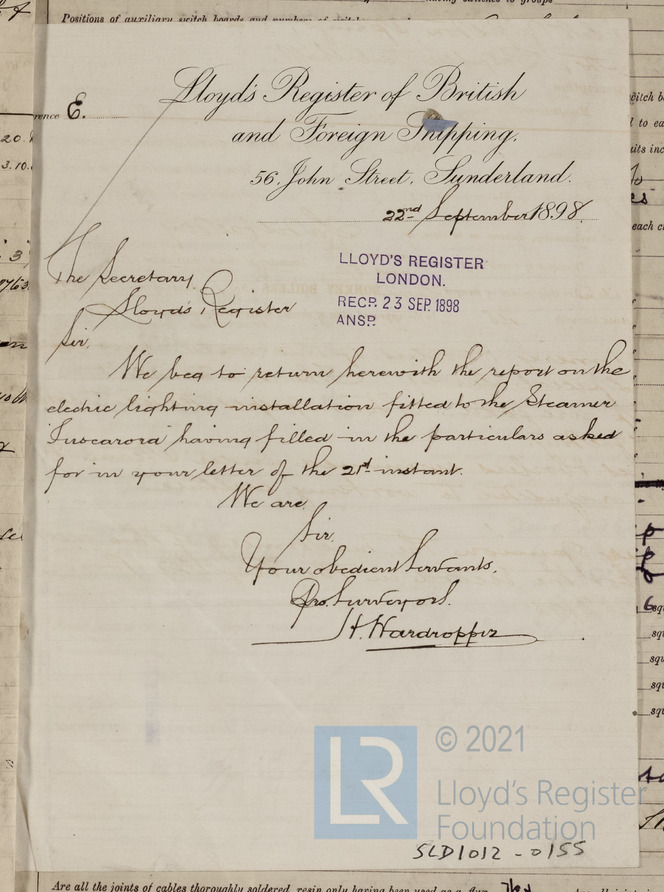 Positions of auxiliary switch boards and numbers of
having switches to groups
E.
Lloyd's Register of British
and Foreign Shipping.
56, John Street, Sunderland.
22nd September 1898.
LLOYD'S REGISTER
LONDON.
RECD. 23 SEP. 1898
ANSD.
The Secretary
Lloyd's Register
Sir,
We beg to return herewith the report on the
electric lighting installation fitted to the Steamer
"Tuscarora" having filled in the particulars asked
for in your letter of the 21st instant.
We are,
Sir,
Your obedient Servants,
Pro Surveyors.
H. Wardropper
© 2021
LR
Lloyd's Register
Foundation
SLD1012-0155
Are all the joints of cables thoroughly soldered, resin only having been used as a flux